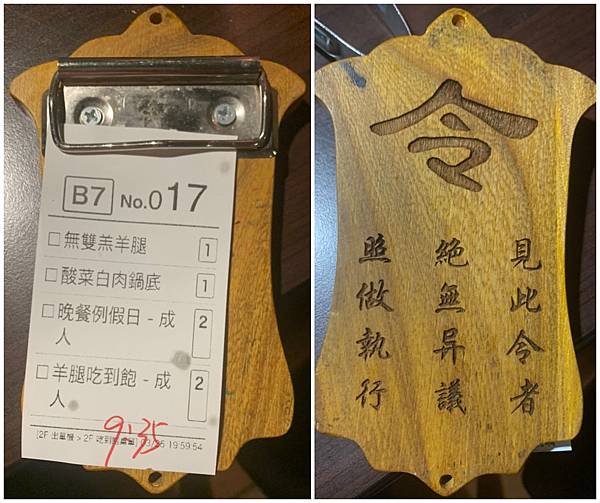 B7 No.017
□無雙羔羊腿 1
□酸菜白肉鍋底 1
□晚餐例假日-成人 2
□羊腿吃到飽-成人 2
9:35
19:59:54
令
見此令者
絕無异議
照做執行